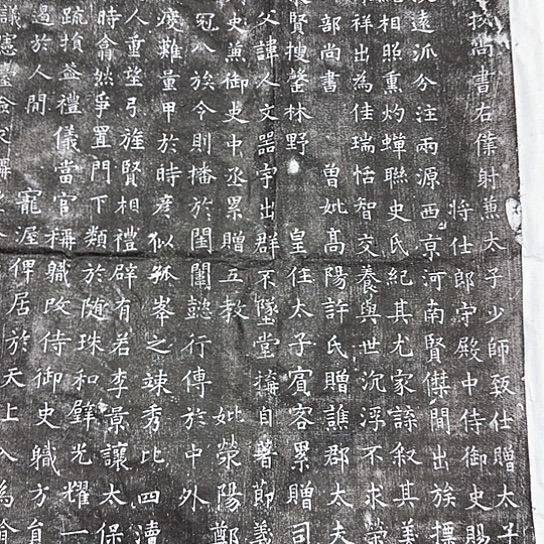 校尚書右僕射兼太子少師致仕贈太子
將仕郎守殿中侍御史賜
遠派分注兩源西京河南賢傑間出族摽
相照熏灼蟬聯史氏紀其尤家諜叙其美
祥出為佳瑞恬智交養與世沉浮不求榮
部尚書 曾妣髙陽許氏贈譙郡太夫
賢搜罄林野 皇任太子賓客累贈司
父諱人文器宇出群不墜堂搆自著節義
史兼御史中丞累贈五教 妣滎陽鄭
冠八族令則播於閨闈懿行傳於中外
度難量甲於時彦似孤峯之竦秀比四瀆
人重望弓旌賢相禮辟有若李景讓太保
時翕然爭置門下類於隨珠和璧光耀一
疏損益禮儀當官稱職改侍御史職方員
過於人間 寵渥俾居於天上
議憲臺